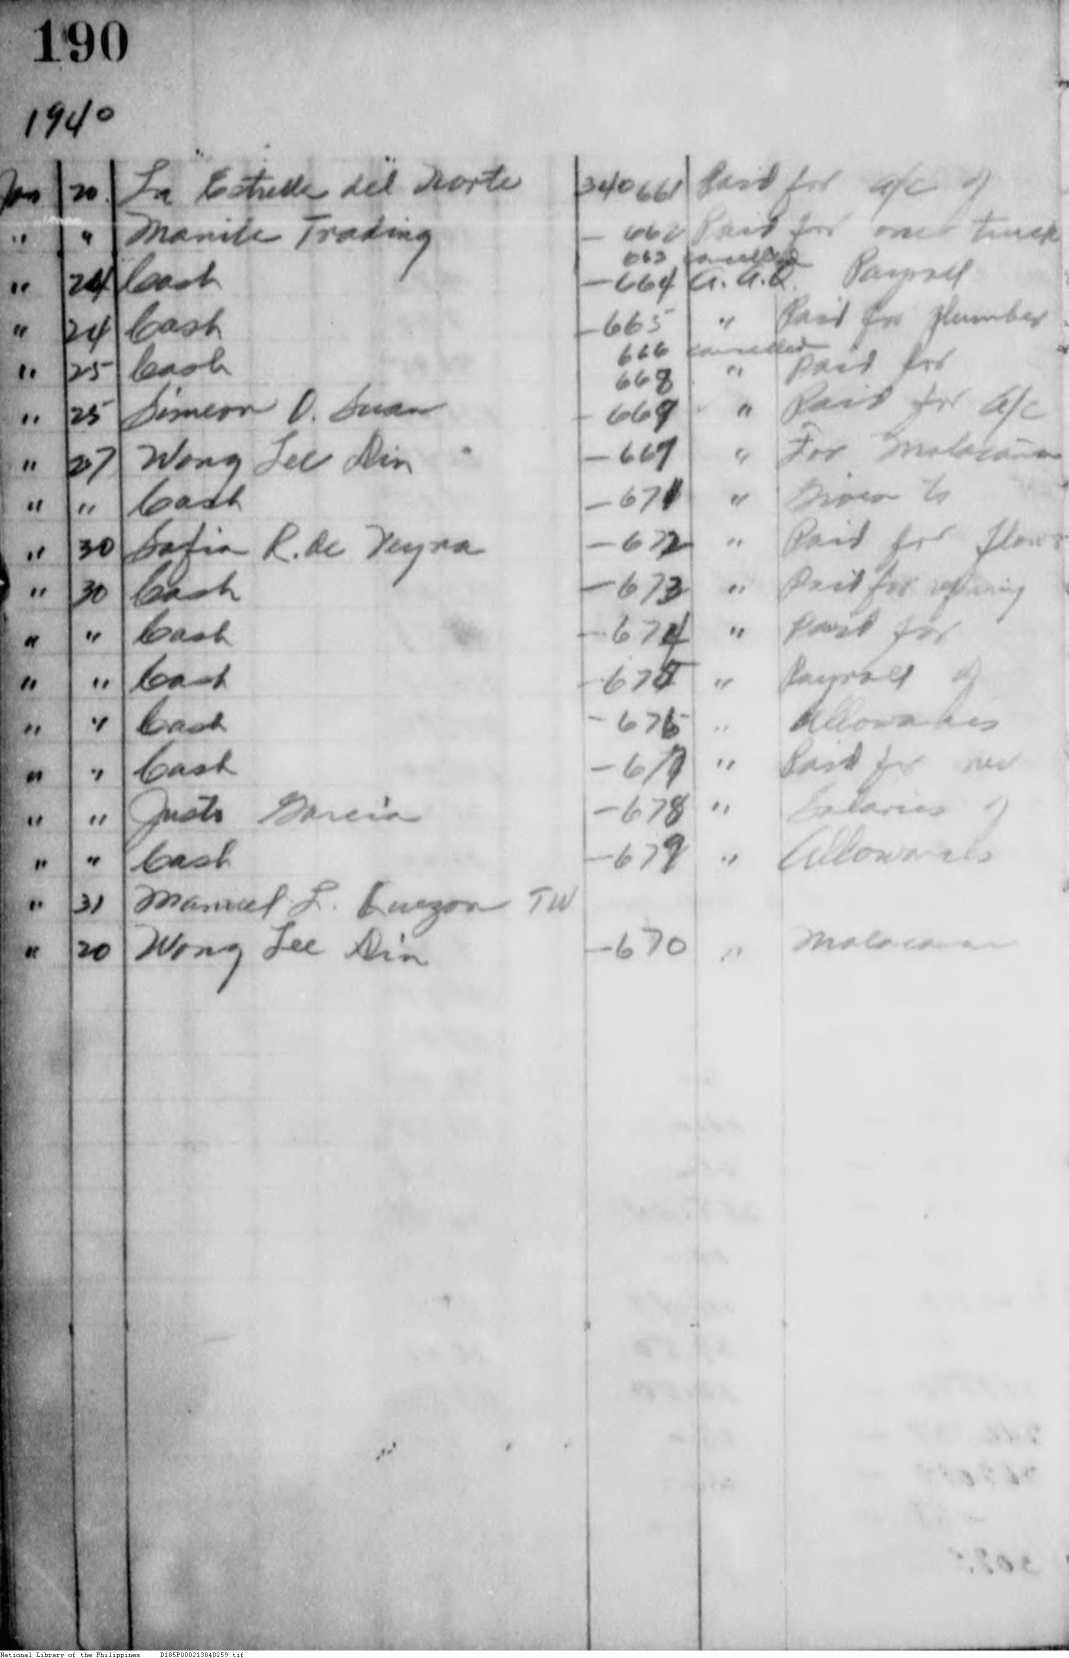 190
1940
Jan 20 La Estrella del Norte 340661 Paid for a/c of
" " Manila Trading — 662 Paid for one truck
663 cancelled
" 24 Cash — 664 A.A.Q. Payroll
" 24 Cash — 665 " Paid for plumber
666 cancelled
" 25 Cash 668 " Paid for
" 25 Simeon O. Suan — 669 " Paid for a/c
" 27 Wong Lee Din — 667 " For Malacañan
" " Cash — 671 " Given to
" 30 Sofia R. de Veyra — 672 " Paid for
" 30 Cash — 673 " Paid for
" " Cash — 674 " Paid for
" " Cash — 675 " Payroll of
" " Cash — 676 " Allowances
" " Cash — 677 " Paid for
" " Justo Garcia — 678 " Salaries of
" " Cash — 679 " Allowances
" 31 Manuel L. Quezon TW
" 20 Wong Lee Din — 670 " Malacanan
National Library of the Philippines D185P000213840259.tif